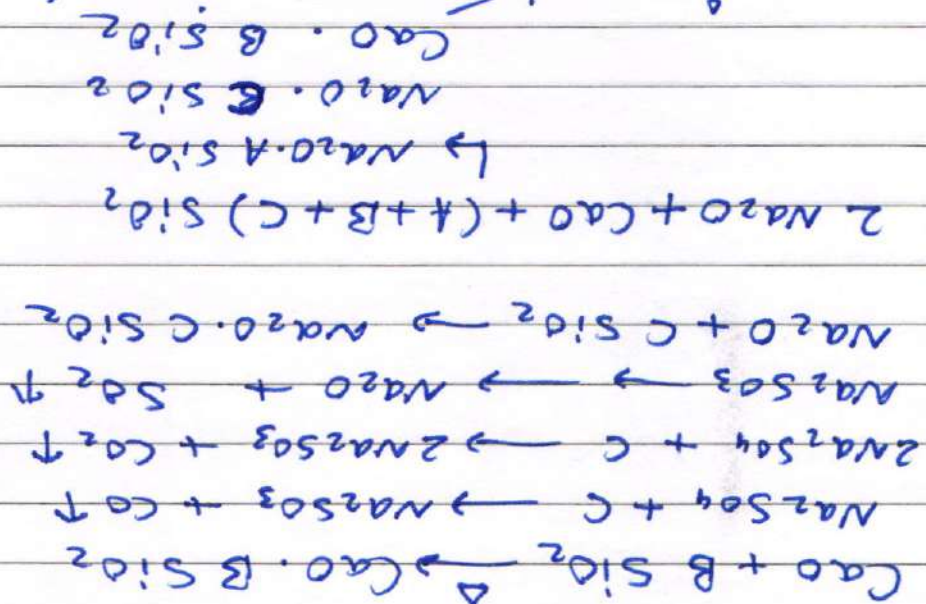 CaO + B SiO₂ —Δ→ CaO · B SiO₂
Na₂SO₄ + C ⟶ Na₂SO₃ + CO ↑
2Na₂SO₄ + C ⟶ 2Na₂SO₃ + CO₂ ↑
Na₂SO₃ → ⟶ Na₂O + SO₂ ↑
Na₂O + C SiO₂ ⟶ Na₂O · C SiO₂
2 Na₂O + CaO + (A + B + C) SiO₂
↳ Na₂O · A SiO₂
Na₂O · C SiO₂
CaO · B SiO₂
Δ